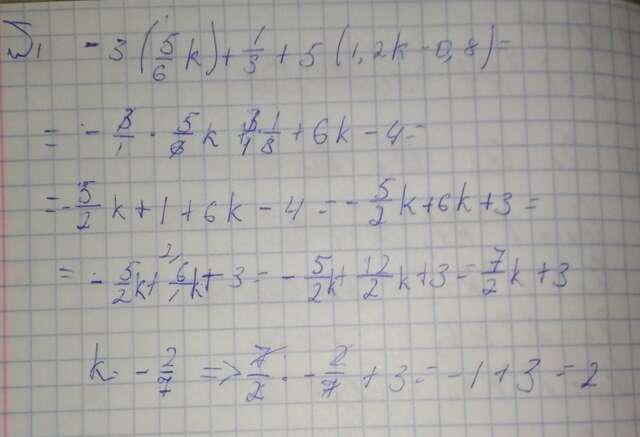 б) - 3 (5/6 k) + 1/3 + 5 (1,2k - 0,8) =
= - 3/1 · 5/6 k + 3/1 · 1/3 + 6k - 4 =
= - 5/2 k + 1 + 6k - 4 = - 5/2 k + 6k + 3 =
= - 5/2 k + 6/1 k + 3 = - 5/2 k + 12/2 k + 3 = 7/2 k + 3
k = - 2/7 => 7/2 · - 2/7 + 3 = -1 + 3 = 2